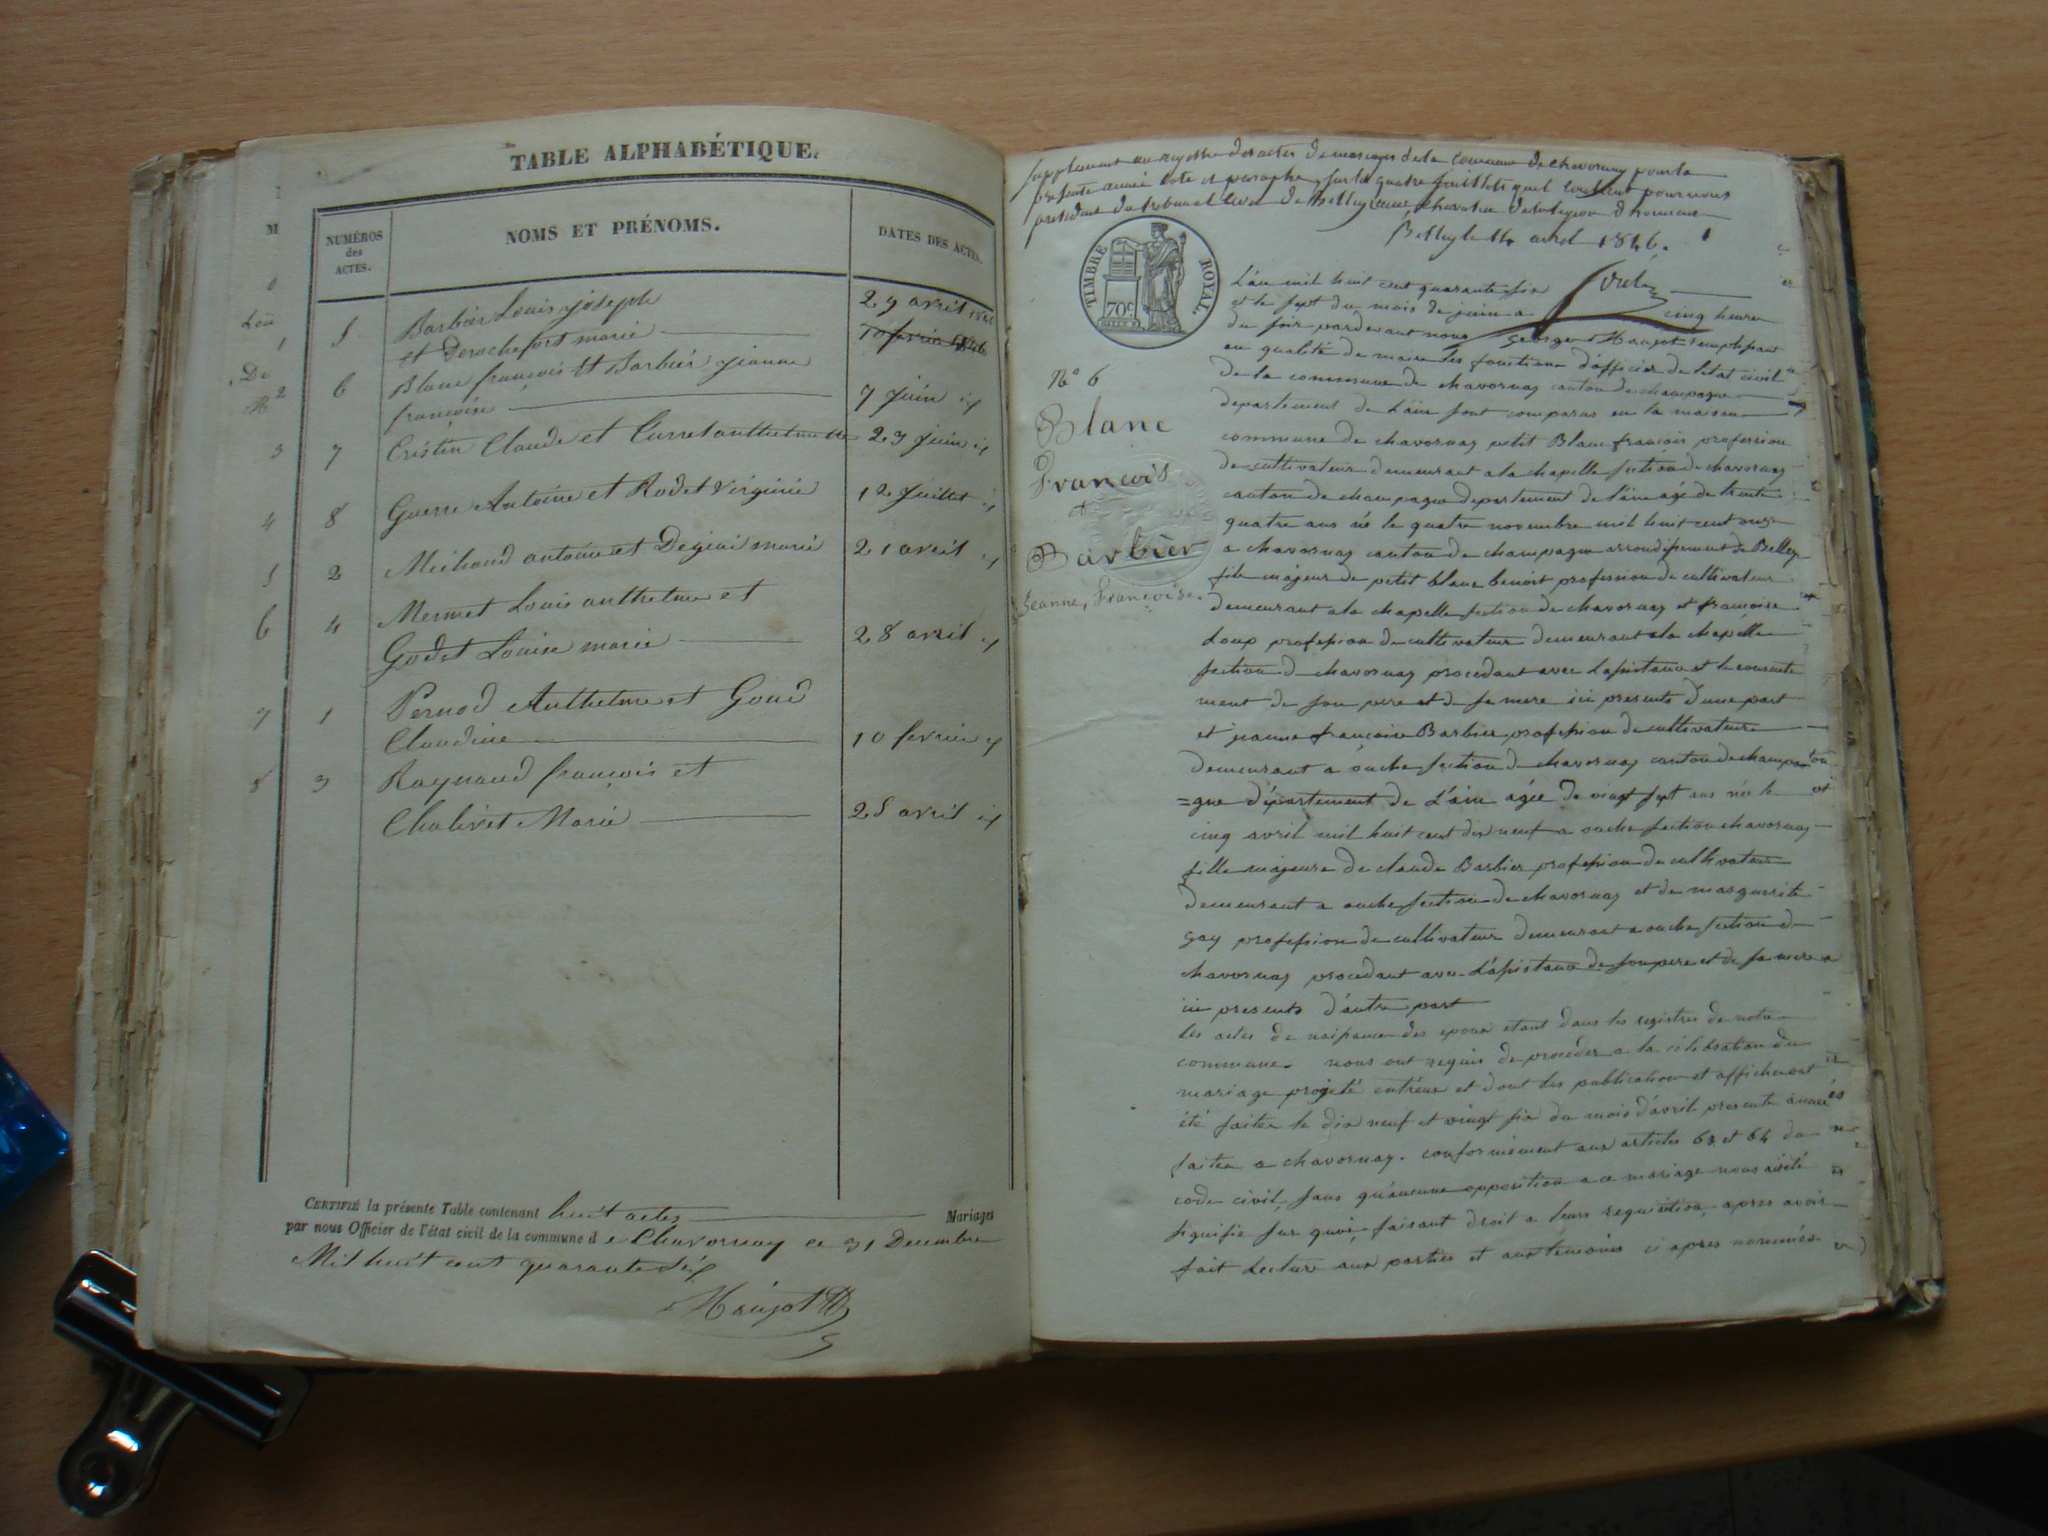 TABLE ALPHABÉTIQUE.
NUMÉROS des ACTES.
NOMS ET PRÉNOMS.
DATES DES ACTES.
5 Barbier Louis joseph 29 avril 1846
et Derochefort marie 10 fevrier 1846
6 Blanc françois et Barbier jeanne
françoise 7 juin id
7 Cristin Claude et Curret anthelmette 23 juin id
8 Guerre Antoine et Rodet virginie 12 juillet id
2 Michaud antoine et marie 21 avril id
4 Mermet Louis anthelme et
Godet Louise marie 28 avril id
1 Pernod Anthelme et Goud
Claudine 10 fevrier id
3 Raynaud françois et
Chalivet Marie 25 avril id
CERTIFIÉ la présente Table contenant huit actes Mariages
par nous Officier de l'état civil de la commune d e Chavornay ce 31 Decembre
Mil huit cent quarante six
supplement au registre des actes de mariages de la commune de chavornay pour la
presente année coté et paraphé sur les quatre feuillets quil contient par nous
president du tribunal civil de Belley chevalier de la legion d'honneur
Belley le 14 avril 1846.
TIMBRE ROYAL
70c
L'an mil huit cent quarante six
et le sept du mois de juin a cinq heures
du soir pardevant nous george Haujot remplissant
en qualité de maire les fonctions d'officier de l'état civil
de la commune de chavornay canton de champagne
departement de L'ain sont comparus en la maison
N° 6
Blanc
François
et
Barbier
Jeanne, Françoise.
commune de chavornay petit Blanc françois profession
de cultivateur demeurant a la chapelle section de chavornay
canton de champagne departement de l'ain agé de trente
quatre ans né le quatre novembre mil huit cent onze
a chavornay canton de champagne arrondissement de Belley
fils majeur de petit blanc benoit profession de cultivateur
demeurant a la chapelle section de chavornay et françoise
Loup profession de cultivateur demeurant a la chapelle
section de chavornay procedant avec l'assistance et le consente
ment de son pere et de sa mere ici presents d'une part
et jeanne françoise Barbier profession de cultivateur
demeurant a ouche section de chavornay canton de champa
=gne département de L'ain agée de vingt sept ans née le
cinq avril mil huit cent dix neuf a ouche section chavornay
fille majeure de claude Barbier profession de cultivateur
demeurant a ouche section de chavornay et de marguerite
gay profession de cultivateur demeurant a ouche section de
chavornay procedant avec L'assistance de son pere et de sa mere
ici presents d'autre part
les actes de naissance des epoux etant dans les registres de notre
commune. nous ont requis de proceder a la célébration du
mariage projeté entreux et dont les publications et affiches ont
été faites le dix neuf et vingt six du mois d'avril presente année
faites a chavornay. conformément aux articles 63 et 64 du
code civil, sans qu'aucune opposition a ce mariage nous ait été
signifie sur quoi, faisant droit a leurs requisition, apres avoir
fait Lecture aux parties et aux temoins ci apres nommés